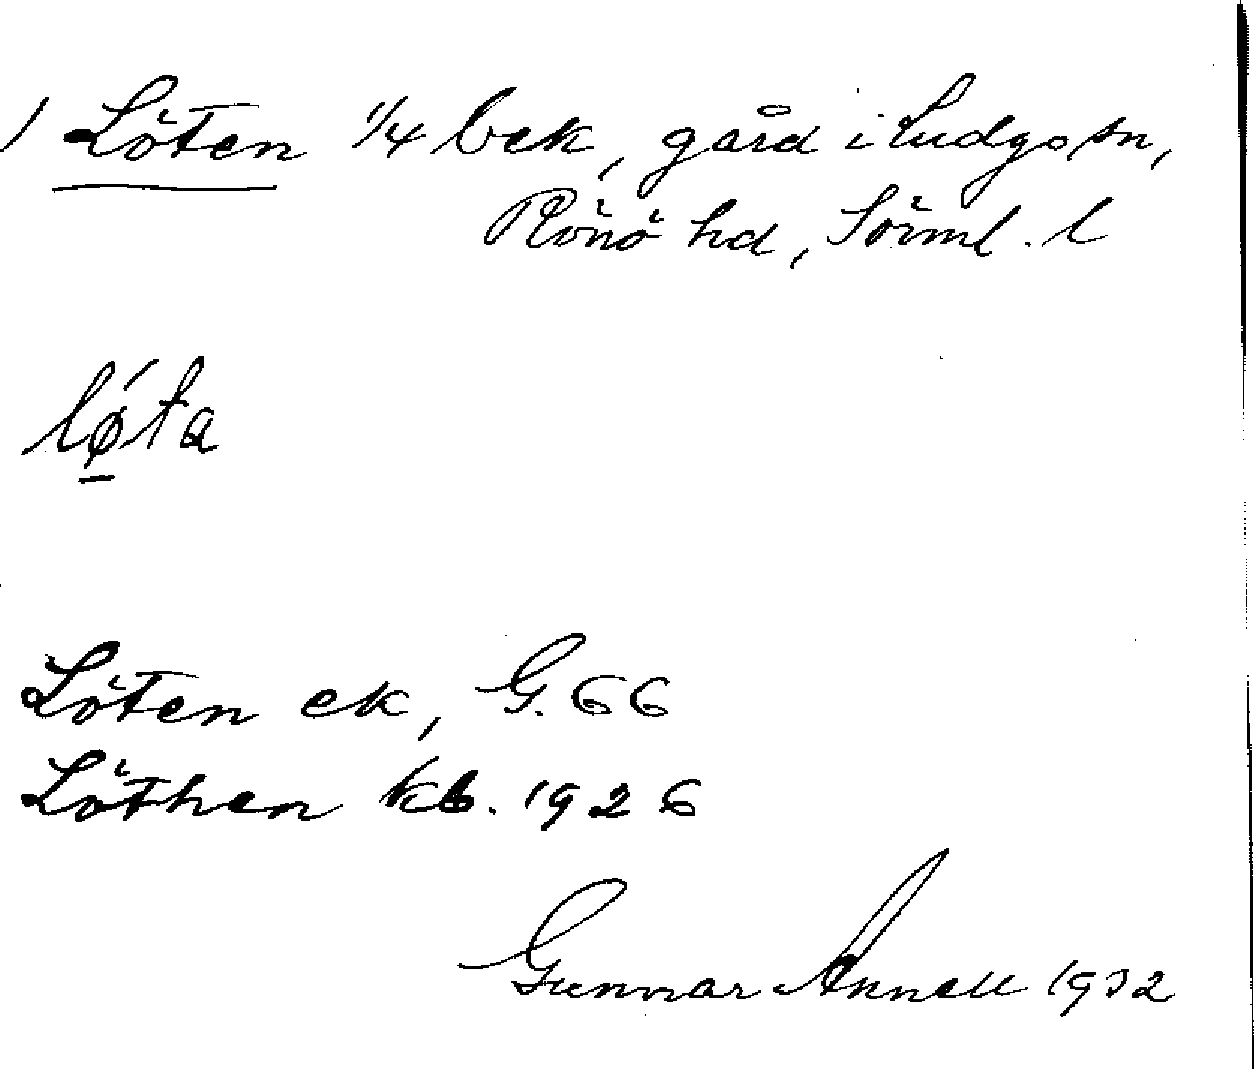 1 Löten 1/4 bek, gård i Ludgo sn,
Rönö hd, Sörml. l
lǿ̱ta
Löten ek, G. 66
Löthen kb. 1926
Gunnar Annell 1932